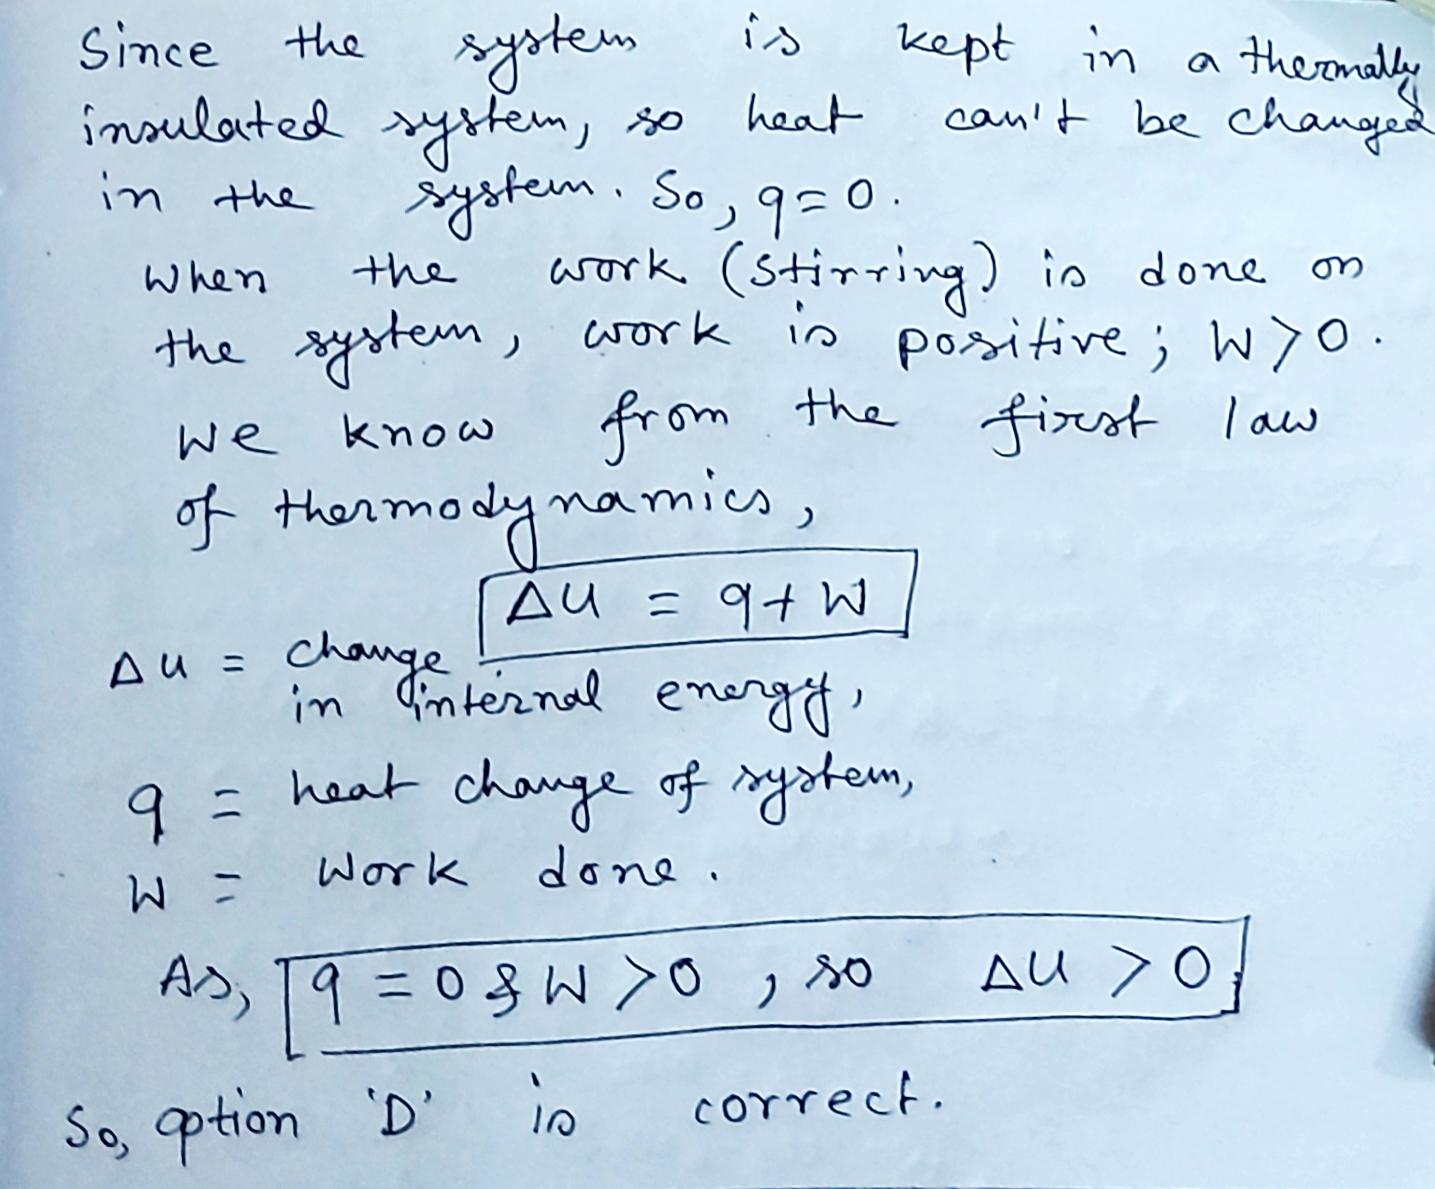 Since the system is kept in a thermally
insulated system, so heat can't be changed
in the system. So, q=0.
When the work (stirring) is done on
the system, work is positive; W>0.
We know from the first law
of thermodynamics,
ΔU = q+W
ΔU = change
in internal energy,
q = heat change of system,
W = Work done.
As, q=0 & W>0, so ΔU>0
So, option 'D' is correct.